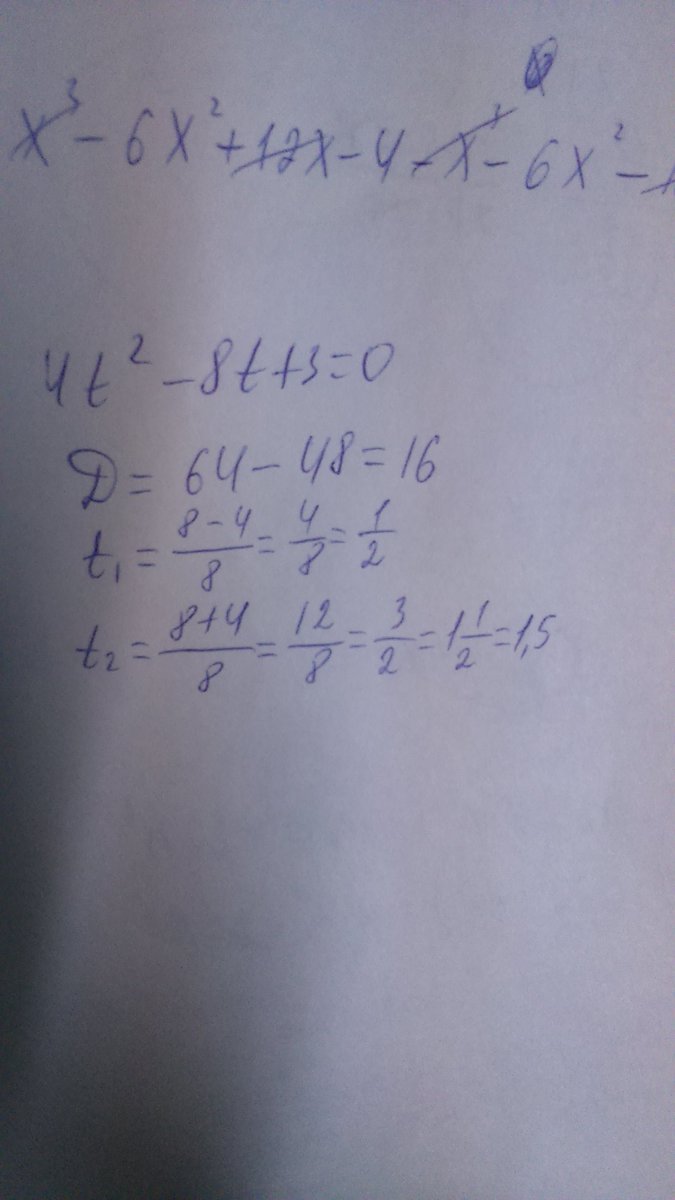 x³ - 6x² + 12x - 4 - x³ - 6x² -
4t² - 8t + 3 = 0
D = 64 - 48 = 16
t₁ = (8-4)/8 = 4/8 = 1/2
t₂ = (8+4)/8 = 12/8 = 3/2 = 1 1/2 = 1,5